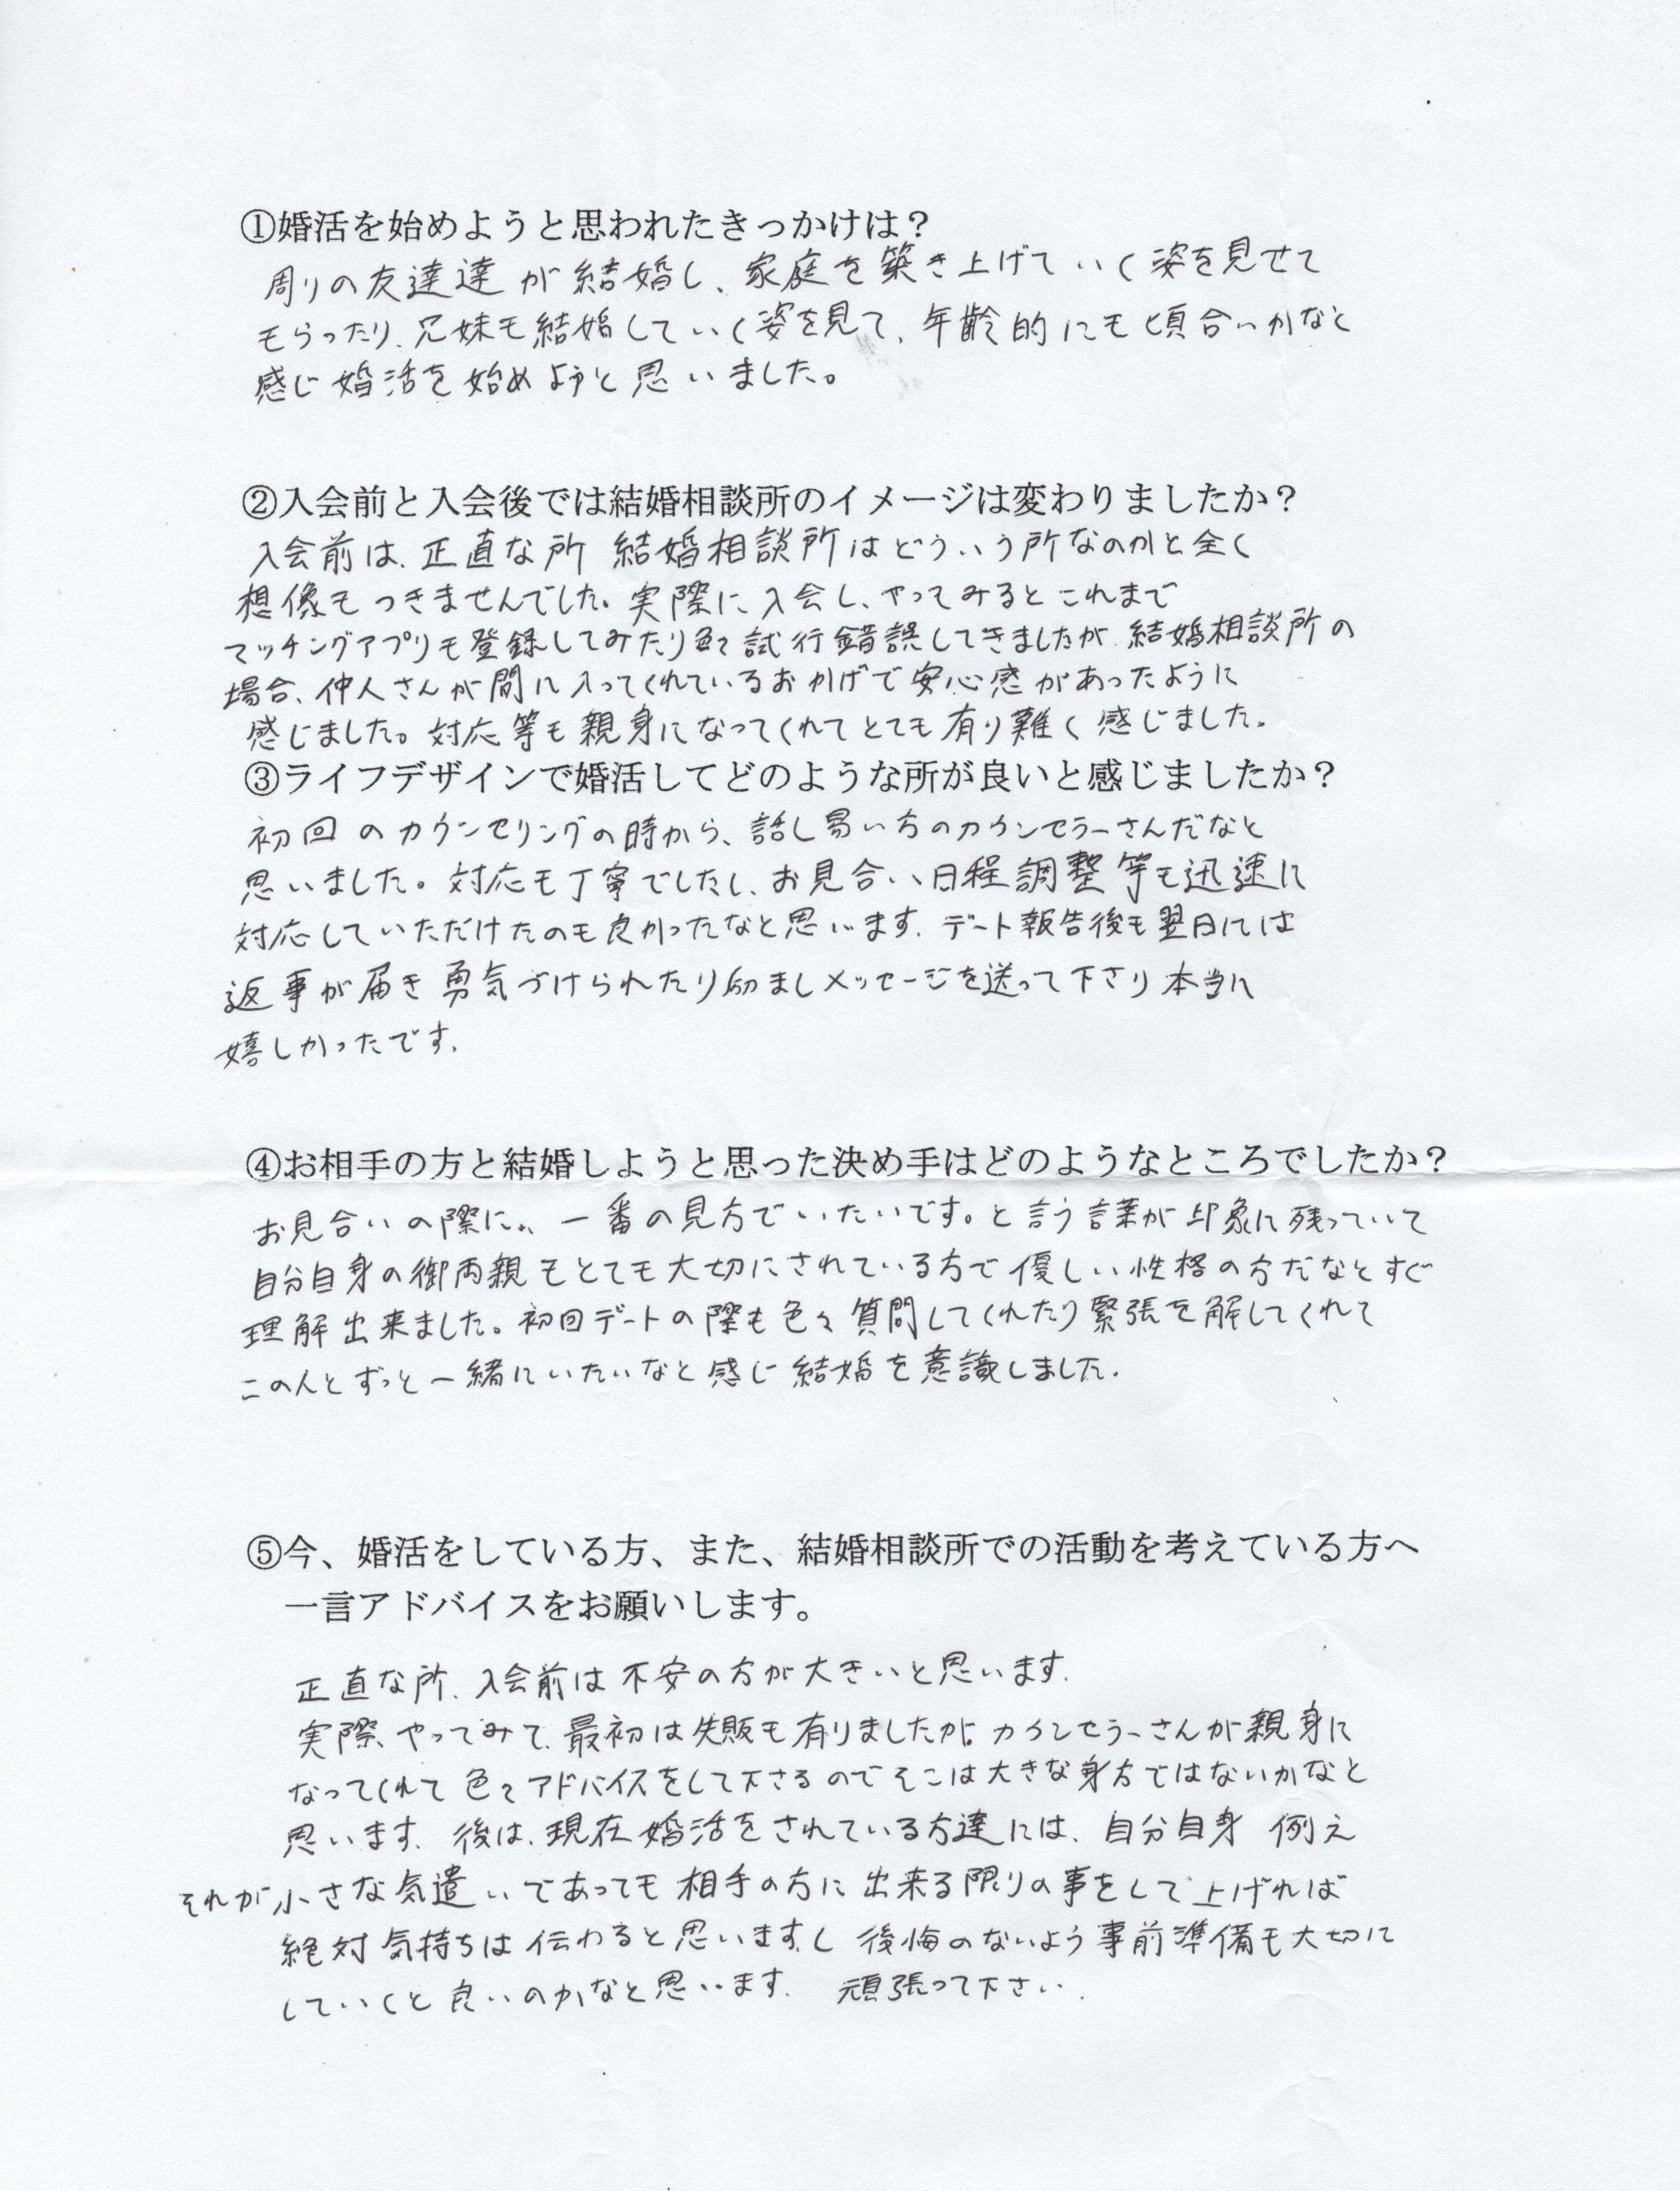 ①婚活を始めようと思われたきっかけは？
周りの友達達が結婚し、家庭を築き上げていく姿を見せて
もらったり、兄妹も結婚していく姿を見て、年齢的にも頃合いかなと
感じ婚活を始めようと思いました。
②入会前と入会後では結婚相談所のイメージは変わりましたか？
入会前は、正直な所 結婚相談所はどういう所なのかと全く
想像もつきませんでした。実際に入会し、やってみるとこれまで
マッチングアプリも登録してみたり色々試行錯誤してきましたが 結婚相談所の
場合、仲人さんが間に入ってくれているおかげで安心感があったように
感じました。対応等も親身になってくれてとても有り難く感じました。
③ライフデザインで婚活してどのような所が良いと感じましたか？
初回のカウンセリングの時から、話し易い方のカウンセラーさんだなと
思いました。対応も丁寧でしたし、お見合い、日程調整等も迅速に
対応していただけたのも良かったなと思います。デート報告後も翌日には
返事が届き勇気づけられたり励ましメッセージを送って下さり本当に
嬉しかったです。
④お相手の方と結婚しようと思った決め手はどのようなところでしたか？
お見合いの際に、一番の見方でいたいです。と言う言葉が印象に残っていて
自分自身の御両親もとても大切にされている方で優しい性格の方だなとすぐ
理解出来ました。初回デートの際も色々質問してくれたり緊張を解してくれて
この人とずっと一緒にいたいなと感じ結婚を意識しました。
⑤今、婚活をしている方、また、結婚相談所での活動を考えている方へ
一言アドバイスをお願いします。
正直な所、入会前は不安の方が大きいと思います。
実際、やってみて、最初は失敗も有りましたが、カウンセラーさんが親身に
なってくれて色々アドバイスをして下さるのでそこは大きな身方ではないかなと
思います。後は、現在婚活をされている方達には、自分自身 例え
それが小さな気遣いであっても相手の方に出来る限りの事をして上げれば
絶対気持ちは伝わると思いますし 後悔のないよう事前準備も大切に
していくと良いのかなと思います。 頑張って下さい。